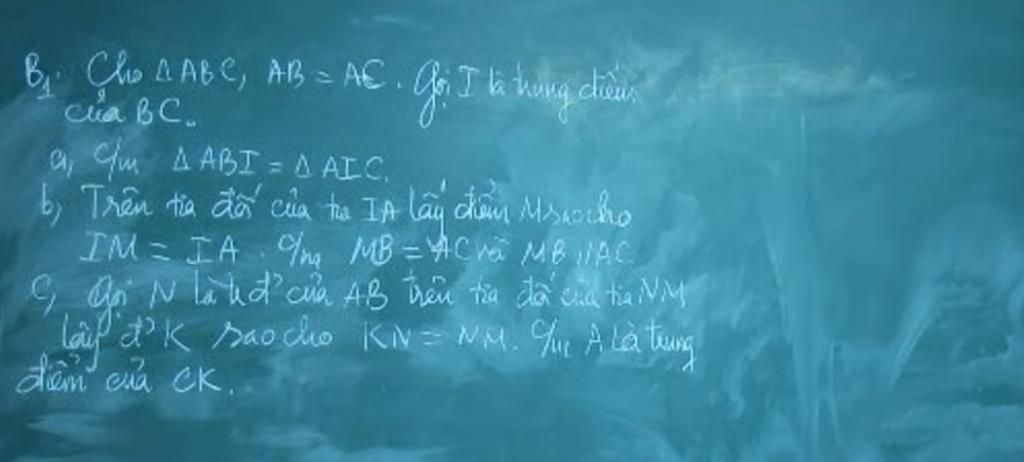 B1. Cho △ABC, AB = AC. Gọi I là trung điểm
của BC.
a, c/m △ABI = △AIC.
b, Trên tia đối của tia IA lấy điểm M sao cho
IM = IA. c/m MB = AC và MB // AC
c, gọi N là tđ của AB trên tia đối của tia NM
lấy đ' K sao cho KN = NM. c/m A là trung
điểm của CK.